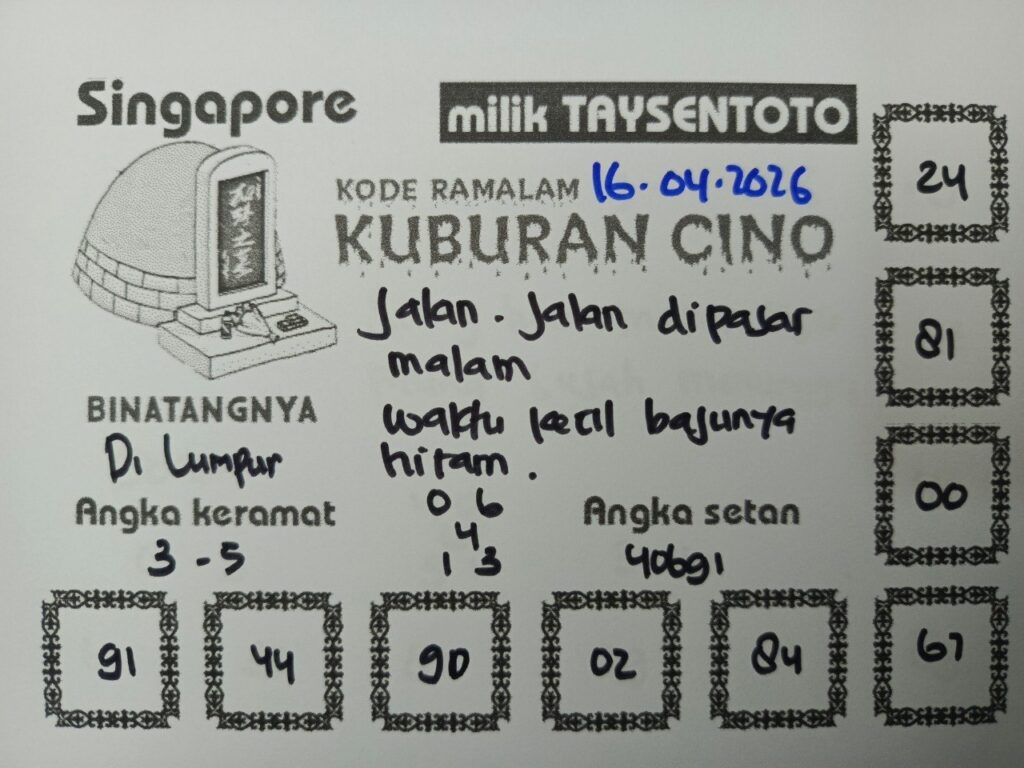 Singapore
milik TAYSENTOTO
KODE RAMALAM 16.04.2026
KUBURAN CINO
Jalan. Jalan dipasar
malam
waktu kecil bajunya
hitam.
BINATANGNYA
Di Lumpur
Angka keramat
3 - 5
0 6
4
1 3
Angka setan
40691
24
81
00
67
91
44
90
02
84